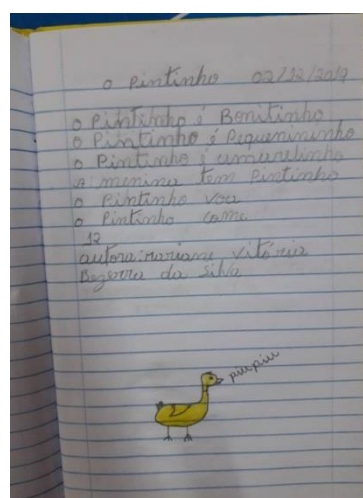 o Pintinho 02/12/2019
o Pintinho é Bonitinho
o Pintinho é Pequenininho
o Pintinho é amarelinho
A menina tem Pintinho
o Pintinho voa
o Pintinho come
12
autora: mariane vitória
Bezerra da Silva
piu piu